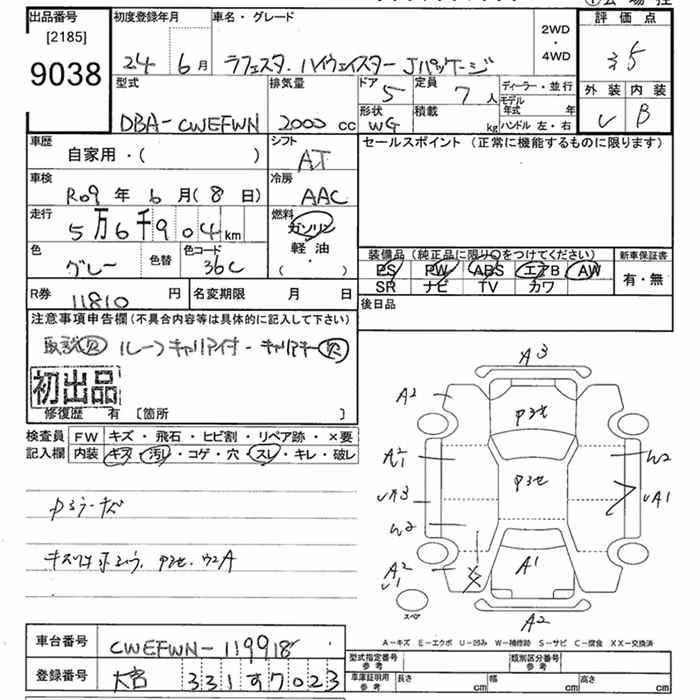 出品番号 初度登録年月 車名・グレード 2WD・4WD 評価点
[2185]
9038
24年 6月 ラフェスタ・ハイウェイスター Jパッケージ 3.5
型式 排気量 ドア 定員 ディーラー・並行 外装 内装
DBA-CWEFWN 2000cc 5 7人 モデル年式 年 B
形状 積載 ハンドル 左・右
WG kg
車歴 シフト セールスポイント(正常に機能するものに限ります)
自家用・( ) AT
車検 冷房
R09年 6月(8日) AAC
走行 燃料
5万6千904km ガソリン
軽油
・
( )
色 色替 色コード
グレー 36C
装備品(純正品に限り○をつけてください) 新車保証書
PS PW ABS エアB AW 有・無
SR ナビ TV カワ
R券 11810円 名変期限 月 日 後日品
注意事項申告欄(不具合内容等は具体的に記入して下さい)
取説欠 ルーフキャリア付-キャリアキー欠
初出品
修復歴 有 [箇所 ]
検査員記入欄 FW キズ・飛石・ヒビ割・リペア跡・×要
内装 キズ・汚レ・コゲ・穴・スレ・キレ・破レ
A3
A2
A1
W2
A2
A1
A2
スペア
A-キズ E-エクボ U-凹み W-補修跡 S-サビ C-腐食 XX-交換済
車台番号 CWEFWN-119918
登録番号 大宮 331 ヤ 7023
型式指定番号 参考 類別区分番号 参考
車庫証明用 参考 長さ cm 幅 cm 高さ cm